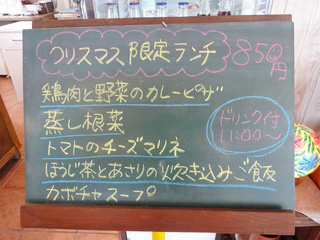 クリスマス限定ランチ 850円
鶏肉と野菜のカレーピザ
蒸し根菜
トマトのチーズマリネ
ほうじ茶とあさりの炊き込みご飯
カボチャスープ
ドリンク付
11:00〜